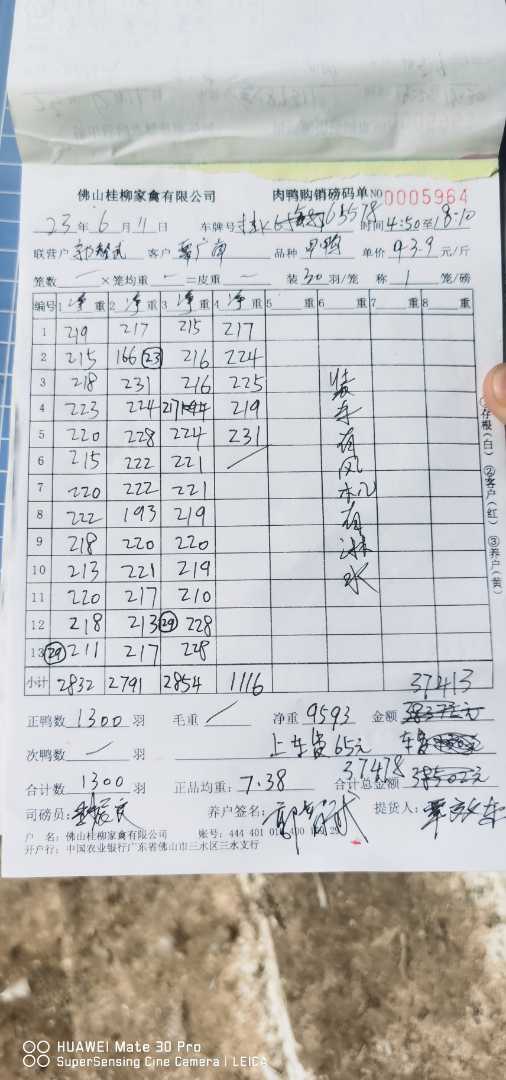 佛山桂柳家禽有限公司 肉鸭购销磅码单 NO 0005964
23年6月11日 车牌号 65578 时间 4:50至18:10
联营户 客户 品种 甲鸭 单价 9-3.9 元/斤
笼数 — ×笼均重 — =皮重 — 装 30 羽/笼 称 1 笼/磅
编号 1 净 重 2 净 重 3 净 重 4 净 重 5 重 6 重 7 重 8 重
1 219 217 215 217
2 215 166 23 216 224
3 218 231 216 225
4 223 224 217 219
5 220 228 224 231
6 215 222 221
7 220 222 221
8 222 193 219
9 218 220 220
10 213 221 219
11 220 217 210
12 218 213 29 228
13 29 211 217 228
装车有风机有淋水
①存根(白) ②客户(红) ③养户(黄)
小计 2832 2791 2854 1116 37413
正鸭数 1300 羽 毛重 净重 9593 金额
次鸭数 — 羽 上车费65元 车费
合计数 1300 羽 正品均重: 7.38 37478 合计总金额 38502元
司磅员: 养户签名: 提货人:
户 名: 佛山桂柳家禽有限公司 账号: 444 401 01
开户行: 中国农业银行广东省佛山市三水区三水支行
HUAWEI Mate 30 Pro
SuperSensing Cine Camera | LEICA